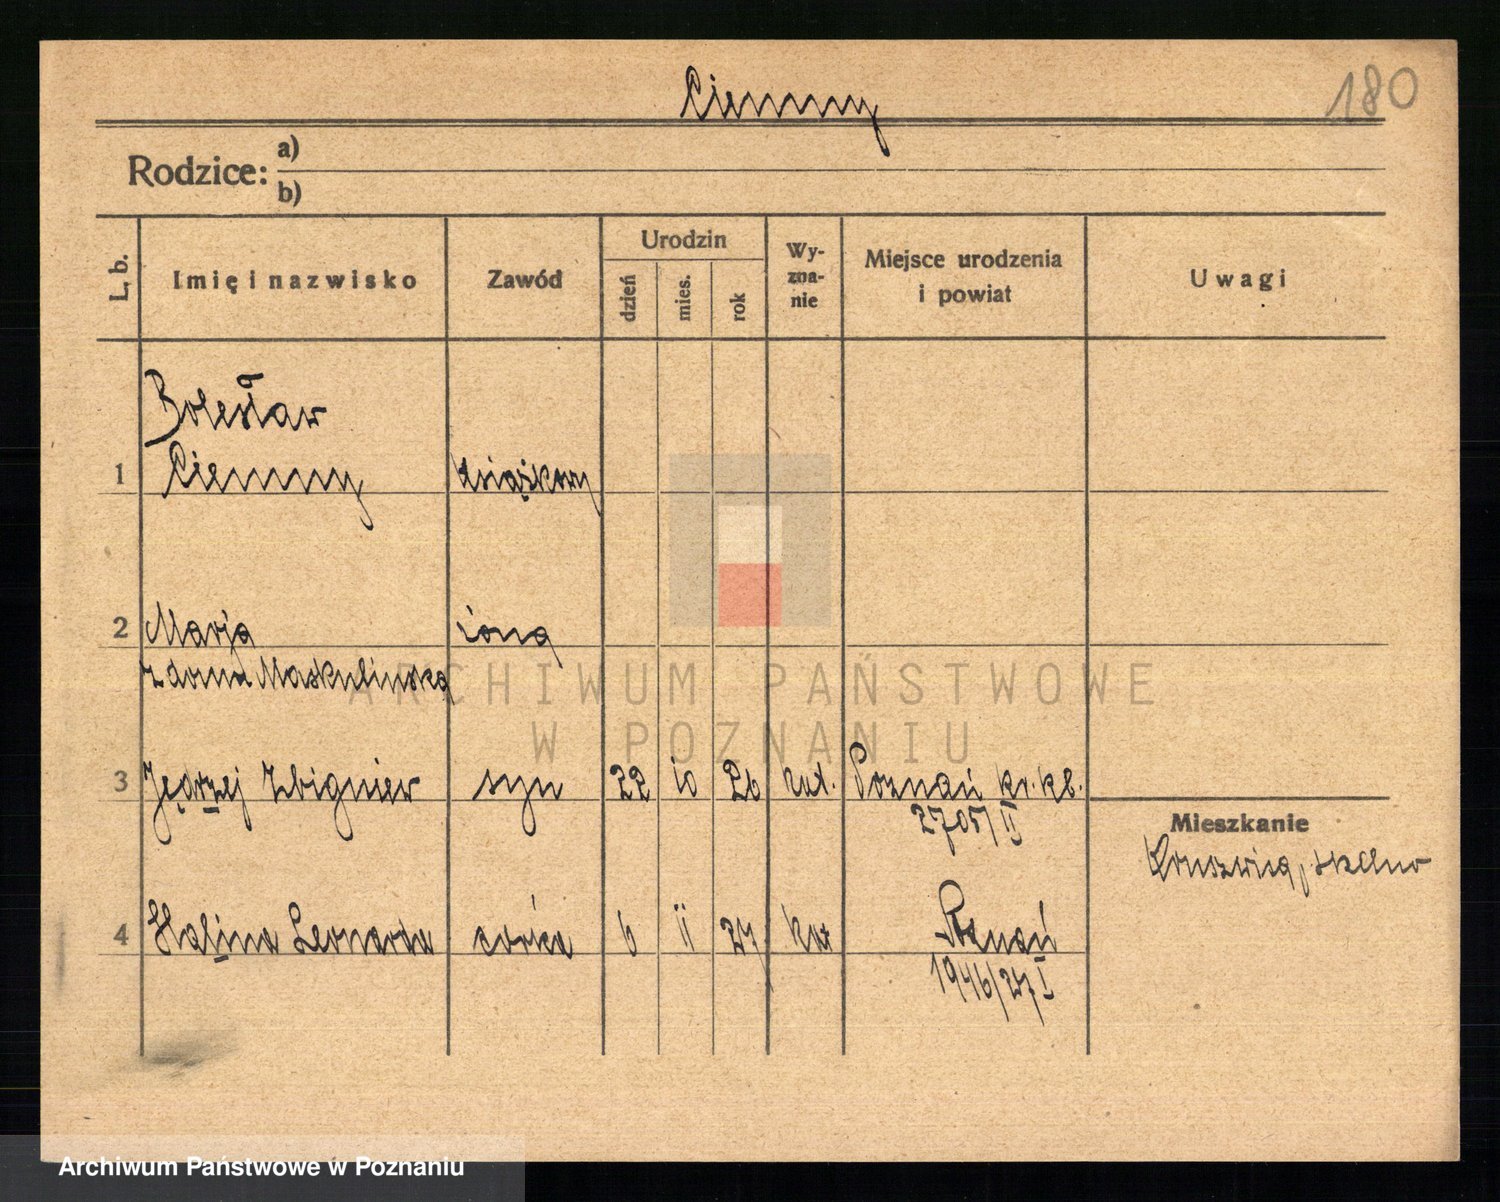 Ciemny
180
Rodzice: a)
b)
L. b.
Imię i nazwisko
Zawód
Urodzin
dzień
mies.
rok
Wy-
zna-
nie
Miejsce urodzenia
i powiat
Uwagi
Bolesław
1 Ciemny książkowy
2 Marja żona
z domu Maskulinska
3 Jędrzej Zbigniew syn 22 10 26 kat. Poznań kr. kl.
2705/II
Mieszkanie
4 Halina Leonarda córka 6 11 27 kat Poznań
1946/27/I
ARCHIWUM PAŃSTWOWE
W POZNANIU
Archiwum Państwowe w Poznaniu